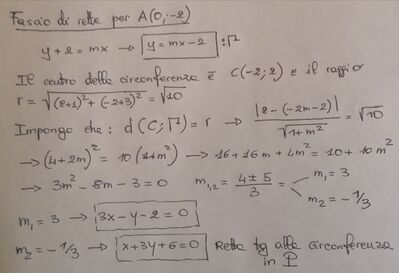 Fascio di rette per A(0;-2)
y+2=mx → y=mx-2 :Γ
Il centro della circonferenza è C(-2;2) e il raggio
r=√(2+1)²+(-2+3)² = √10
Impongo che: d(C;Γ)=r → |2-(-2m-2)|/√1+m² = √10
→(4+2m)²=10(1+m²) → 16+16m+4m²=10+10m²
→ 3m²-8m-3=0 m₁,₂ = 4±5/3 = m₁=3 m₂=-1/3
m₁=3 → 3x-y-2=0
m₂=-1/3 → x+3y+6=0 Retta tg alla circonferenza
in P